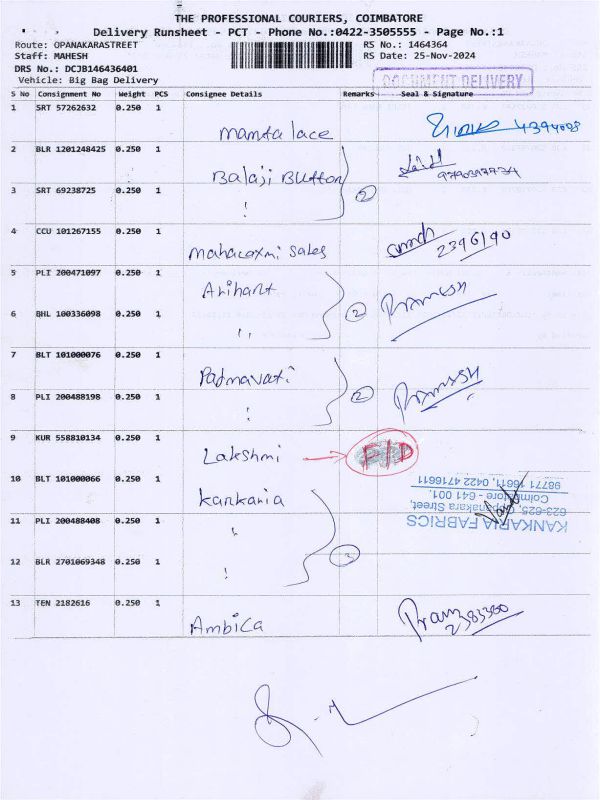 THE PROFESSIONAL COURIERS, COIMBATORE
Delivery Runsheet - PCT - Phone No.:0422-3505555 - Page No.:1
Route: OPANAKARASTREET RS No.: 1464364
Staff: MAHESH RS Date: 25-Nov-2024
DRS No.: DCJB146436401
Vehicle: Big Bag Delivery DOCUMENT DELIVERY
S No Consignment No Weight PCS Consignee Details Remarks Seal & Signature
1 SRT 57262632 0.250 1
mamta lace 4394098
2 BLR 1201248425 0.250 1
Balaji Button
3 SRT 69238725 0.250 1 2
!
4 CCU 101267155 0.250 1
mahalaxmi sales 2396190
5 PLI 200471097 0.250 1
Arihant
6 BHL 100336098 0.250 1 2
''
7 BLT 101000076 0.250 1
Padmavati
8 PLI 200488198 0.250 1 2
!
9 KUR 558810134 0.250 1
Lakshmi F/D
10 BLT 101000066 0.250 1
Kankaria
11 PLI 200488408 0.250 1
12 BLR 2701069348 0.250 1 3
!
KANKARIA FABRICS
623-625, Oppanakara Street,
Coimbatore - 641 001.
98771 16611, 0422 4716611
13 TEN 2182616 0.250 1
Ambica 2383380